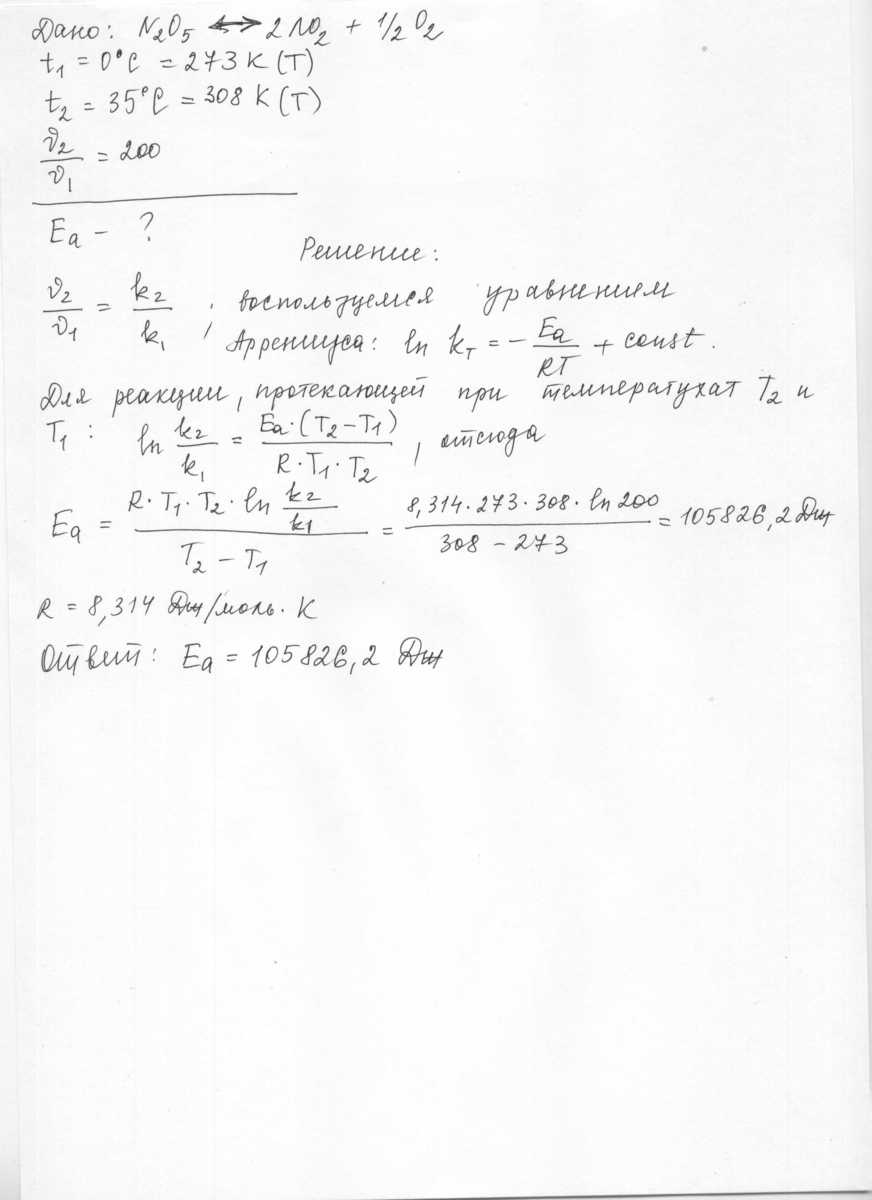 Дано: N₂O₅ ⟷ 2NO₂ + 1/2 O₂
t₁ = 0°C = 273 K (T)
t₂ = 35°C = 308 K (T)
v₂/v₁ = 200
Ea – ?
Решение:
v₂/v₁ = k₂/k₁ ; воспользуемся уравнением
Аррениуса: ln k_T = – Ea/RT + const.
Для реакции, протекающей при температухат T₂ и
T₁ : ln k₂/k₁ = Ea·(T₂–T₁)/R·T₁·T₂ , отсюда
Ea = R·T₁·T₂·ln k₂/k₁ / T₂ – T₁ = 8,314·273·308·ln 200 / 308 – 273 = 105826,2 Дж
R = 8,314 Дж/моль·K
Ответ: Ea = 105826,2 Дж